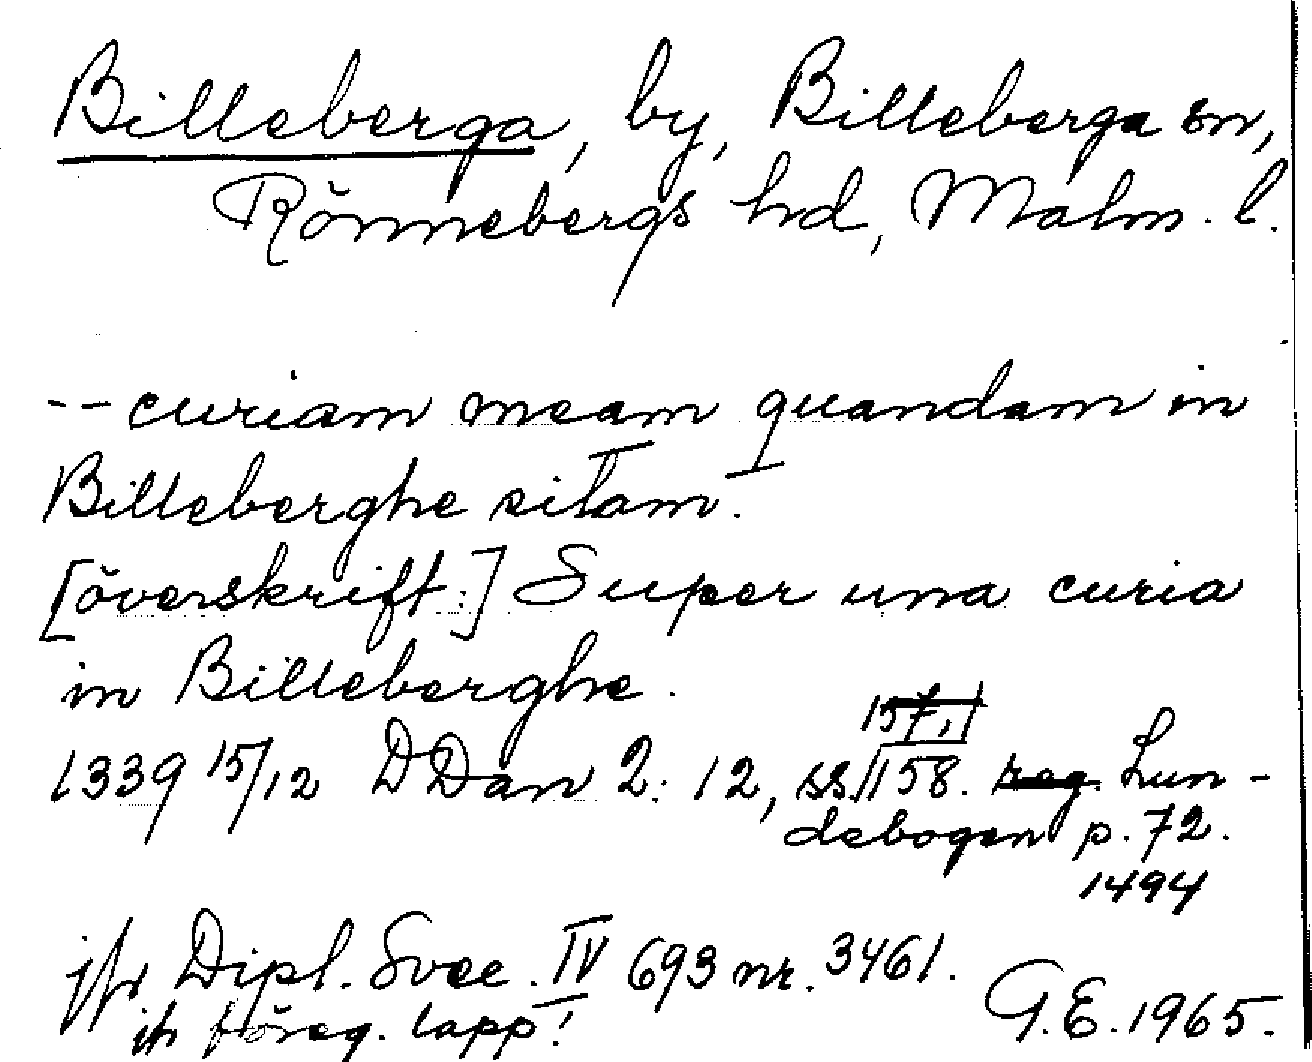 Billeberga, by, Billeberga sn,
Rönnebergs hd, Malm. l.
-- curiam meam quandam in
Billeberghe sitam.
[överskrift:] Super una curia
in Billeberghe.
157,1
1339 15/12 DDan 2: 12, ss. 158. reg. Lun-
debogen p. 72.
1494
jfr Dipl. Svec. IV 693 nr. 3461.
jfr föreg. lapp!
G.E. 1965.